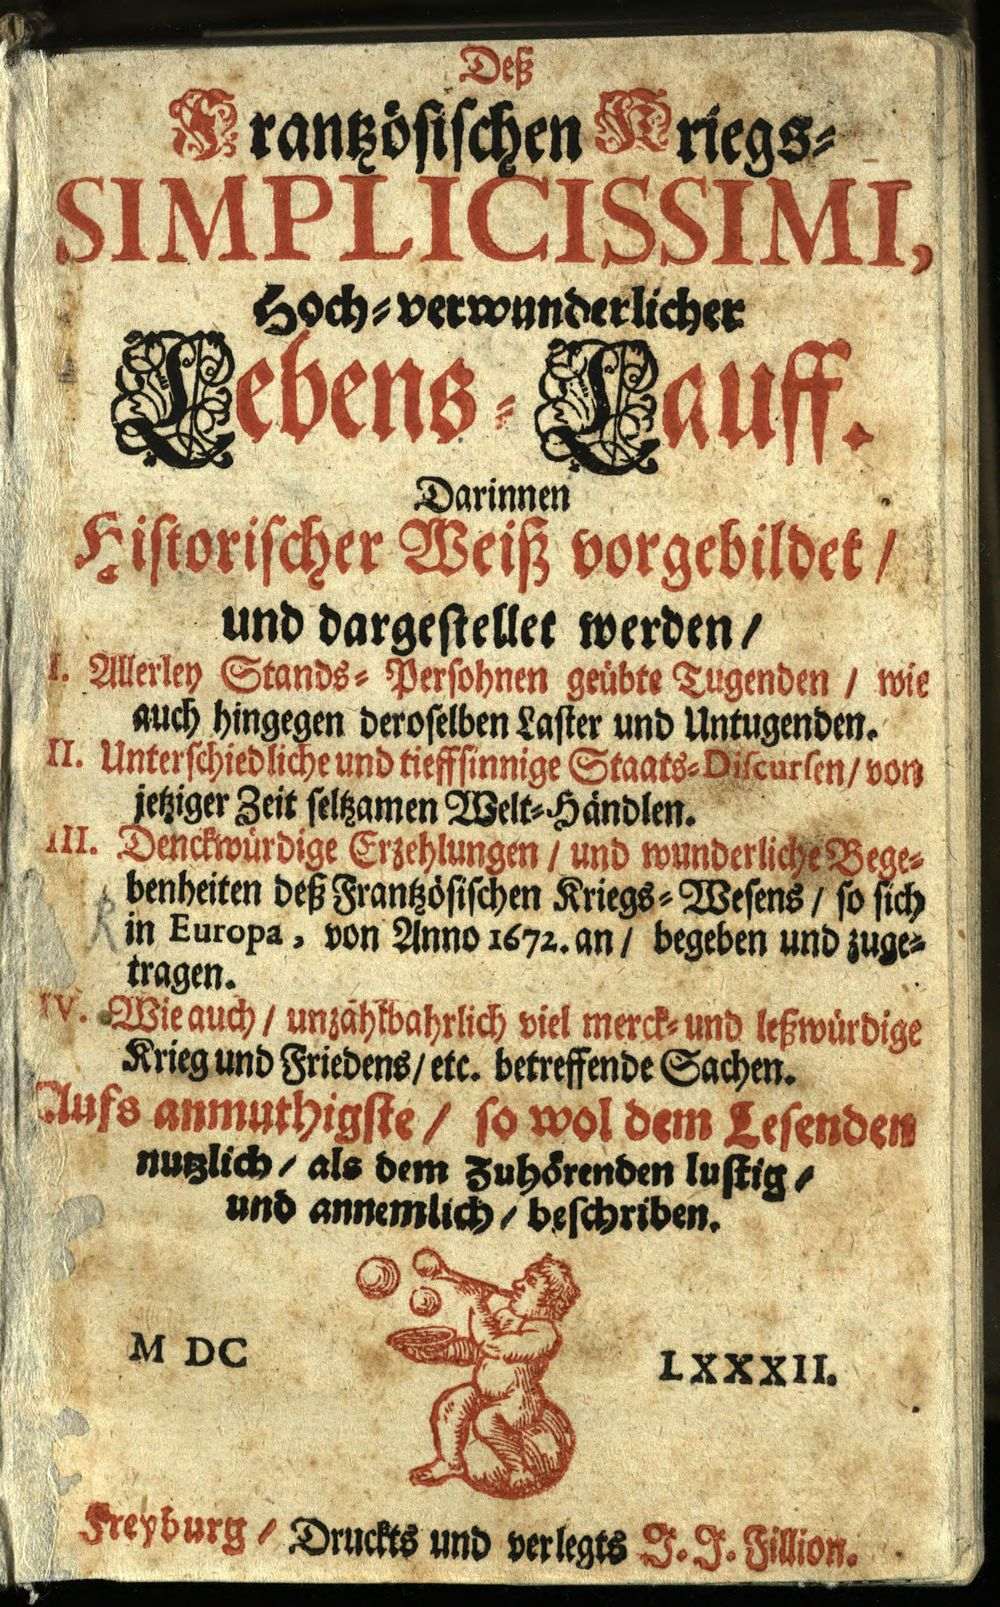 Deß
Frantzösischen Kriegs-
SIMPLICISSIMI,
Hoch-verwunderlicher
Lebens-Lauff.
Darinnen
Historischer Weiß vorgebildet /
und dargestellet werden /
I. Allerley Stands-Persohnen geübte Tugenden / wie
auch hingegen deroselben Laster und Untugenden.
II. Unterschiedliche und tieffsinnige Staats-Discursen / von
jetziger Zeit seltzamen Welt-Händlen.
III. Denckwürdige Erzehlungen / und wunderliche Bege-
benheiten deß Frantzösischen Kriegs-Wesens / so sich
in Europa, von Anno 1672. an / begeben und zuge-
tragen.
IV. Wie auch / unzahlbahrlich viel merck- und leßwürdige
Krieg und Friedens / etc. betreffende Sachen.
Aufs anmuthigste / so wol dem Lesenden
nutzlich / als dem Zuhörenden lustig /
und annemlich / beschriben.
M DC LXXXII.
Freyburg / Druckts und verlegts J. J. Fillion.